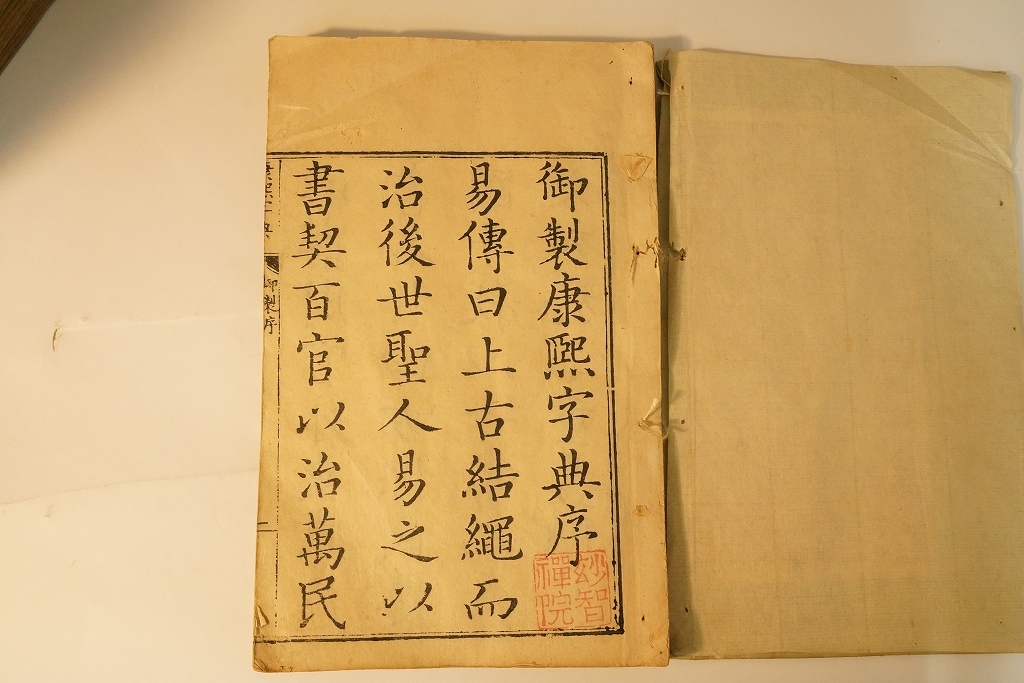 御製康熙字典序
易傳曰上古結繩而
治後世聖人易之以
書契百官以治萬民
康熙字典
御製序
一
妙智
禪院